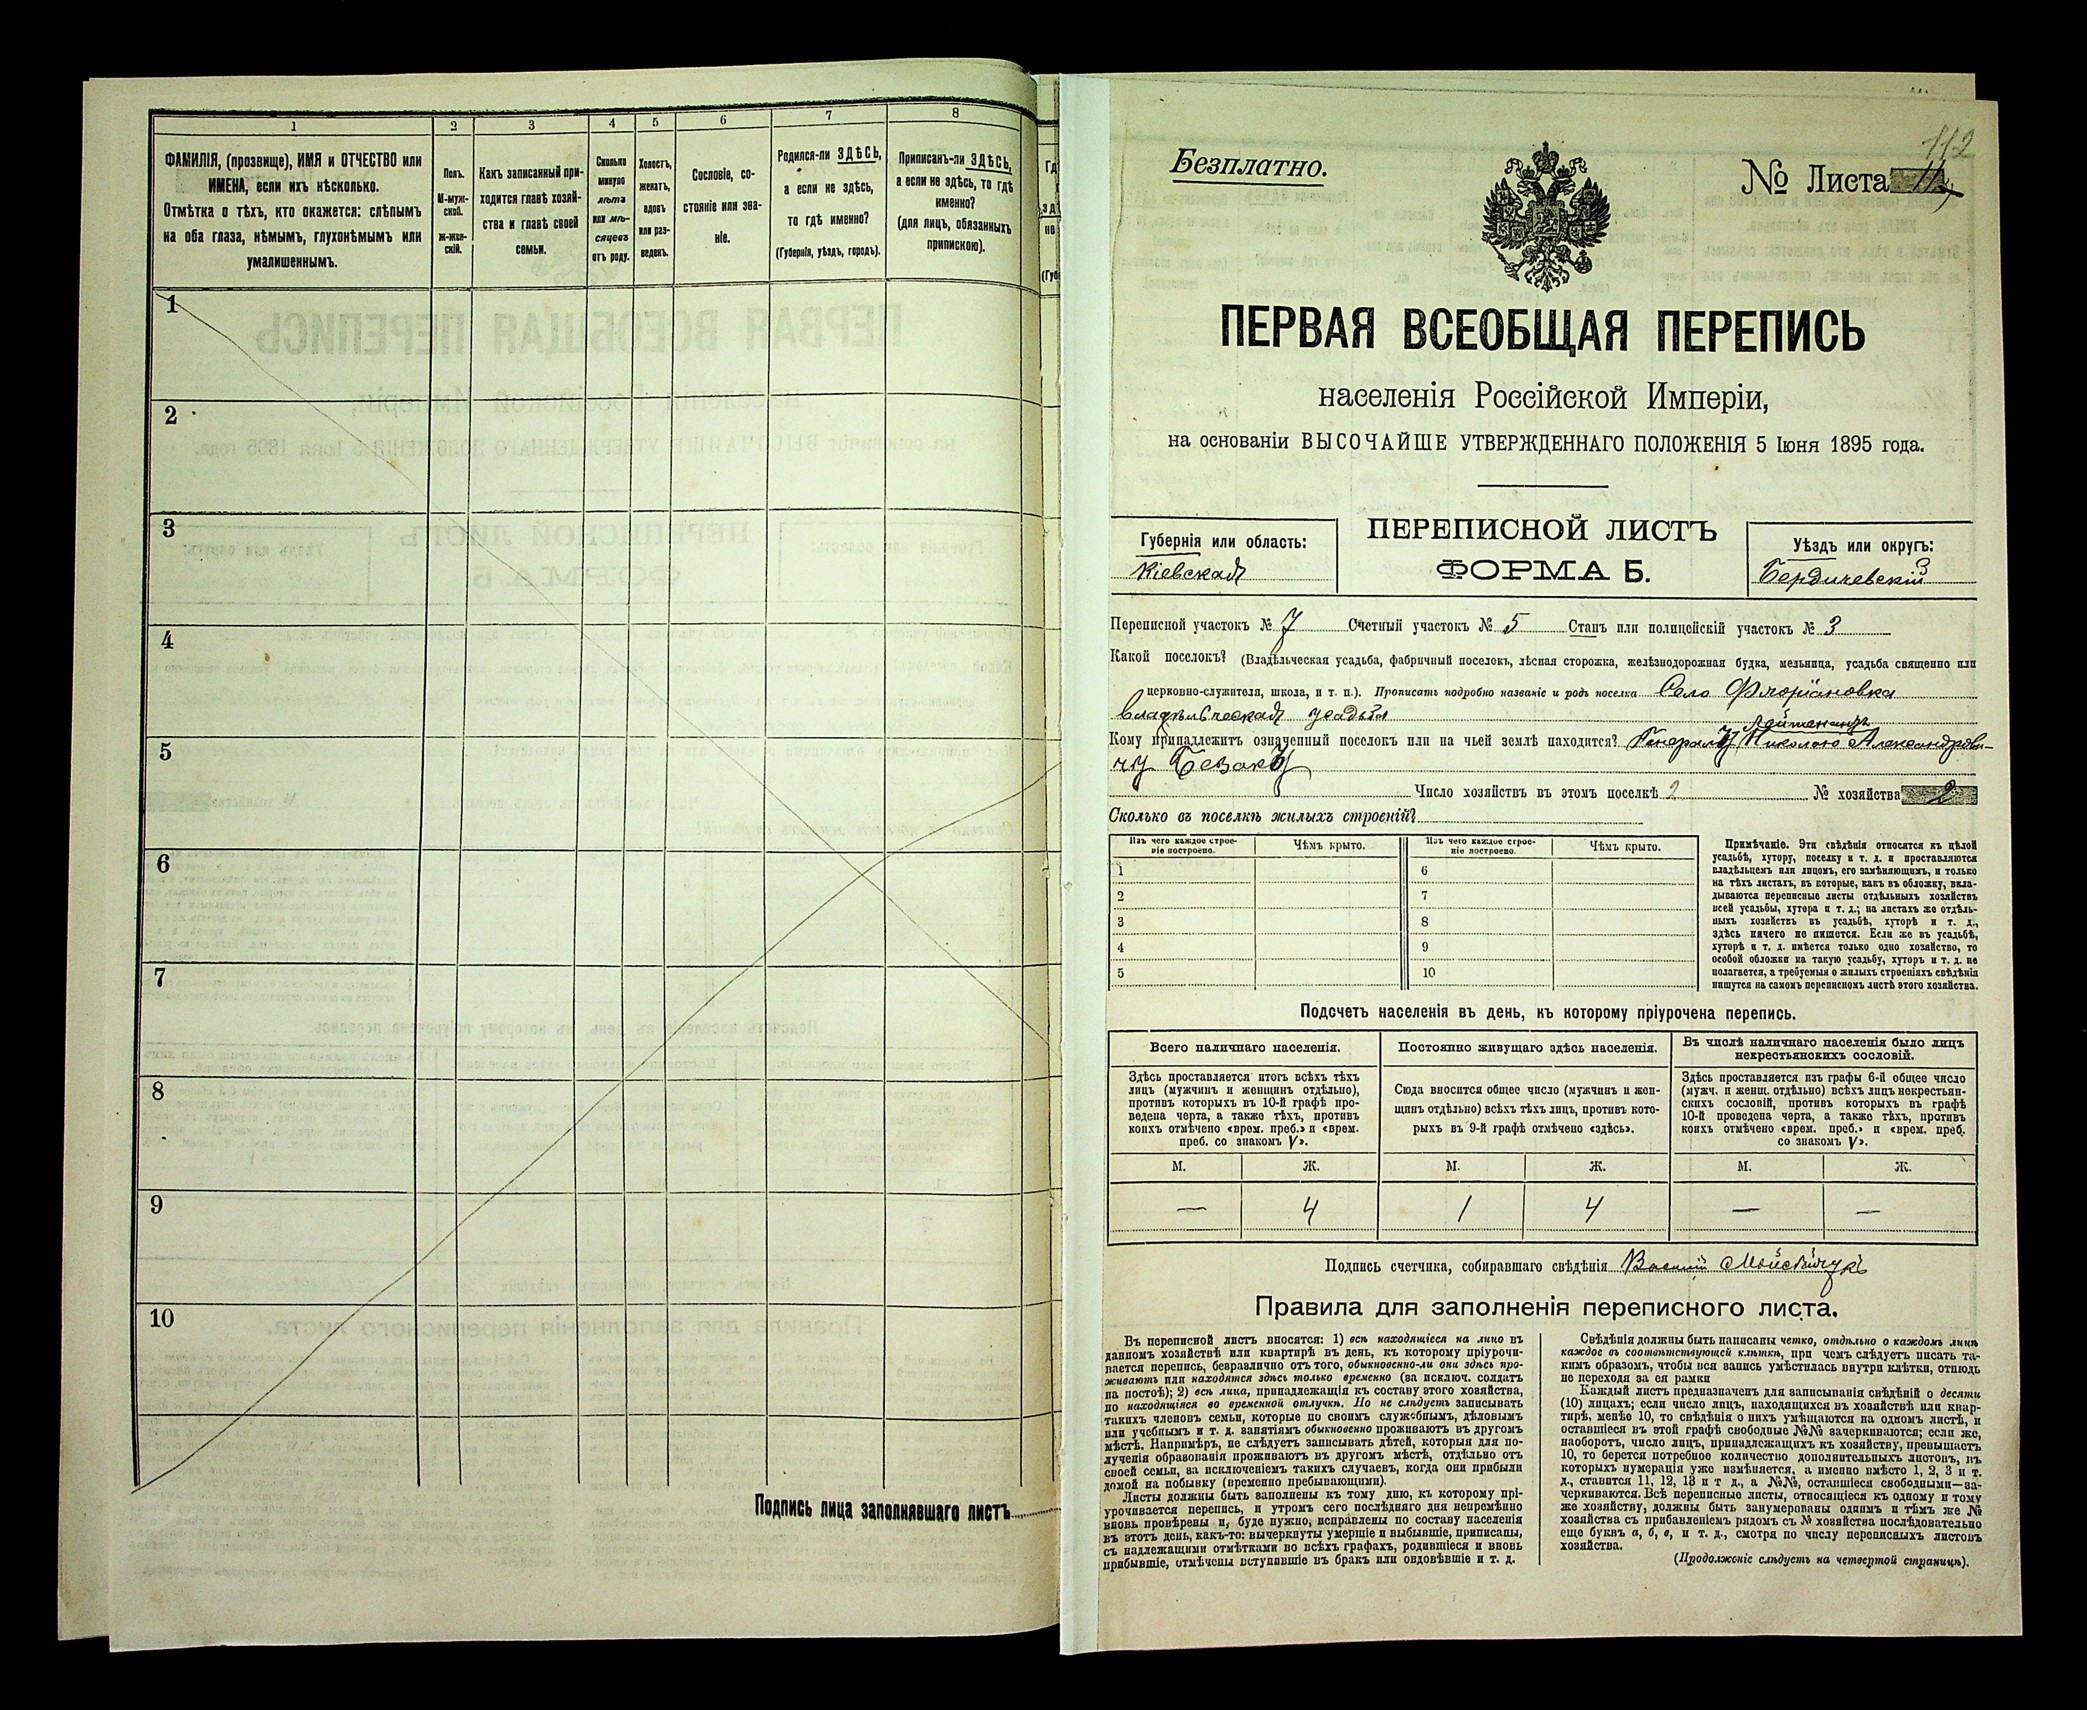 1
2
3
4
5
6
7
8
ФАМИЛІЯ, (прозвище), ИМЯ и ОТЧЕСТВО или
ИМЕНА, если ихъ нѣсколько.
Отмѣтка о тѣхъ, кто окажется: слѣпымъ
на оба глаза, нѣмымъ, глухонѣмымъ или
умалишеннымъ.
Полъ.
М-муж-
ской.
ж-жен-
скій.
Какъ записанный при-
ходится главѣ хозяй-
ства и главѣ своей
семьи.
Сколько
минуло
лѣтъ
или мѣ-
сяцевъ
отъ роду.
Холостъ,
женатъ,
вдовъ
или раз-
веденъ.
Сословіе, со-
стояніе или зва-
ніе.
Родился-ли ЗДѢСЬ,
а если не здѣсь,
то гдѣ именно?
(Губернія, уѣздъ, городъ).
Приписанъ-ли ЗДѢСЬ,
а если не здѣсь, то гдѣ
именно?
(для лицъ, обязанныхъ
припискою).
1
2
3
4
5
6
7
8
9
10
Подпись лица заполнявшаго листъ
112
Безплатно.
№ Листа 11
ПЕРВАЯ ВСЕОБЩАЯ ПЕРЕПИСЬ
населенія Россійской Имперіи,
на основаніи ВЫСОЧАЙШЕ УТВЕРЖДЕННАГО ПОЛОЖЕНІЯ 5 Іюня 1895 года.
Губернія или область:
Кіевская
ПЕРЕПИСНОЙ ЛИСТЪ
ФОРМА Б.
Уѣздъ или округъ:
Бердичевскій
Переписной участокъ № 7 Счетный участокъ № 5 Станъ или полицейскій участокъ № 3
Какой поселокъ? (Владѣльческая усадьба, фабричный поселокъ, лѣсная сторожка, желѣзнодорожная будка, мельница, усадьба священно или
церковно-служителя, школа, и т. п.). Прописать подробно названіе и родъ поселка Село Флоріановка
владѣльческая усадьба
Лейтенанту
Кому принадлежитъ означенный поселокъ или на чьей землѣ находится? Генералу Николаю Александрови-
чу Безаку
Число хозяйствъ въ этомъ поселкѣ 2 № хозяйства 2
Сколько въ поселкѣ жилыхъ строеній?
Изъ чего каждое строе-
ніе построено.
Чѣмъ крыто.
Изъ чего каждое строе-
ніе построено.
Чѣмъ крыто.
1
6
2
7
3
8
4
9
5
10
Примѣчаніе. Эти свѣдѣнія относятся къ цѣлой
усадьбѣ, хутору, поселку и т. д. и проставляются
владѣльцемъ или лицомъ, его замѣняющимъ, и только
на тѣхъ листахъ, въ которые, какъ въ обложку, вкла-
дываются переписные листы отдѣльныхъ хозяйствъ
всей усадьбы, хутора и т. д.; на листахъ же отдѣль-
ныхъ хозяйствъ въ усадьбѣ, хуторѣ и т. д.,
здѣсь ничего не пишется. Если же въ усадьбѣ,
хуторѣ и т. д. имѣется только одно хозяйство, то
особой обложки на такую усадьбу, хуторъ и т. д. не
полагается, а требуемыя о жилыхъ строеніяхъ свѣдѣнія
пишутся на самомъ переписномъ листѣ этого хозяйства.
Подсчетъ населенія въ день, къ которому пріурочена перепись.
Всего наличнаго населенія.
Здѣсь проставляется итогъ всѣхъ тѣхъ
лицъ (мужчинъ и женщинъ отдѣльно),
противъ которыхъ въ 10-й графѣ про-
ведена черта, а также тѣхъ, противъ
коихъ отмѣчено «врем. преб.» и «врем.
преб. со знакомъ V».
Постоянно живущаго здѣсь населенія.
Сюда вносится общее число (мужчинъ и жен-
щинъ отдѣльно) всѣхъ тѣхъ лицъ, противъ кото-
рыхъ въ 9-й графѣ отмѣчено «здѣсь».
Въ числѣ наличнаго населенія было лицъ
некрестьянскихъ сословій.
Здѣсь проставляется изъ графы 6-й общее число
(мужч. и женщ. отдѣльно) всѣхъ лицъ некрестьян-
скихъ сословій, противъ которыхъ въ графѣ
10-й проведена черта, а также тѣхъ, противъ
коихъ отмѣчено «врем. преб.» и «врем. преб.
со знакомъ V».
М. Ж. М. Ж. М. Ж.
— 4 1 4 — —
Подпись счетчика, собиравшаго свѣдѣнія Василій Мойсейчукъ
Правила для заполненія переписного листа.
Въ переписной листъ вносятся: 1) всѣ находящіеся на лицо въ
данномъ хозяйствѣ или квартирѣ въ день, къ которому пріурочи-
вается перепись, безразлично отъ того, обыкновенно-ли они здѣсь про-
живаютъ или находятся здѣсь только временно (за исключ. солдатъ
на постоѣ); 2) всѣ лица, принадлежащія къ составу этого хозяйства,
но находящіяся во временной отлучкѣ. Но не слѣдуетъ записывать
такихъ членовъ семьи, которые по своимъ служебнымъ, дѣловымъ
или учебнымъ и т. д. занятіямъ обыкновенно проживаютъ въ другомъ
мѣстѣ. Напримѣръ, не слѣдуетъ записывать дѣтей, которыя для по-
лученія образованія проживаютъ въ другомъ мѣстѣ, отдѣльно отъ
своей семьи, за исключеніемъ такихъ случаевъ, когда они прибыли
домой на побывку (временно пребывающими).
Листы должны быть заполнены къ тому дню, къ которому прі-
урочивается перепись, и утромъ сего послѣдняго дня непремѣнно
вновь провѣрены и, буде нужно, исправлены по составу населенія
въ этотъ день, какъ-то: вычеркнуты умершіе и выбывшіе, приписаны,
съ надлежащими отмѣтками во всѣхъ графахъ, родившіеся и вновь
прибывшіе, отмѣчены вступившіе въ бракъ или овдовѣвшіе и т. д.
Свѣдѣнія должны быть написаны четко, отдѣльно о каждомъ лицѣ
каждое въ соотвѣтствующей клѣткѣ, при чемъ слѣдуетъ писать та-
кимъ образомъ, чтобы вся запись умѣстилась внутри клѣтки, отнюдь
не переходя за ея рамки
Каждый листъ предназначенъ для записыванія свѣдѣній о десяти
(10) лицахъ; если число лицъ, находящихся въ хозяйствѣ или квар-
тирѣ, менѣе 10, то свѣдѣнія о нихъ умѣщаются на одномъ листѣ, и
оставшіеся въ этой графѣ свободные №№ зачеркиваются; если же,
наоборотъ, число лицъ, принадлежащихъ къ хозяйству, превышаетъ
10, то берется потребное количество дополнительныхъ листовъ, въ
которыхъ нумерація уже измѣняется, а именно вмѣсто 1, 2, 3 и т.
д., ставится 11, 12, 13 и т д., а №№, оставшіеся свободными—за-
черкиваются. Всѣ переписные листы, относящіеся къ одному и тому
же хозяйству, должны быть занумерованы однимъ и тѣмъ же №
хозяйства съ прибавленіемъ рядомъ съ № хозяйства послѣдовательно
еще буквъ а, б, в, и т. д., смотря по числу переписныхъ листовъ
хозяйства.
(Продолженіе слѣдуетъ на четвертой страницѣ).